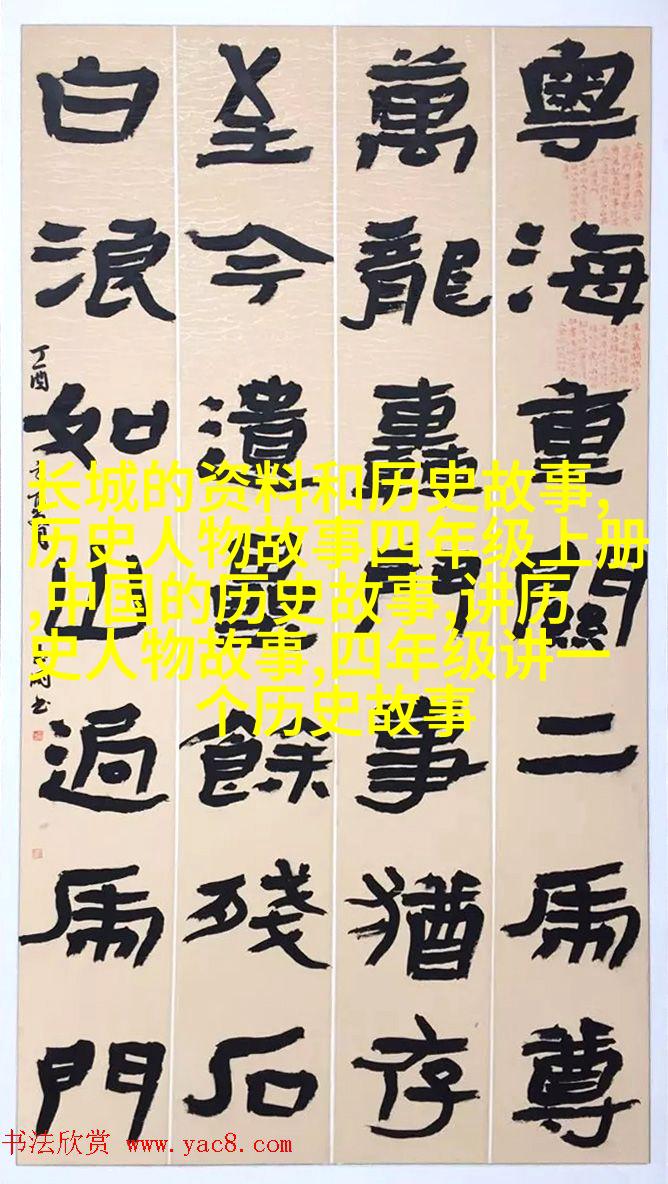 粵海重關二虎尊
萬龍轟鬥事猶存
至今遺壘餘殘石
白浪如山過虎門
丁酉
长城的资料和历史故事,
历史人物故事四年级上册
,中国的历史故事,讲历
史人物故事,四年级讲一
个历史故事
书法欣赏 www.yac8.com